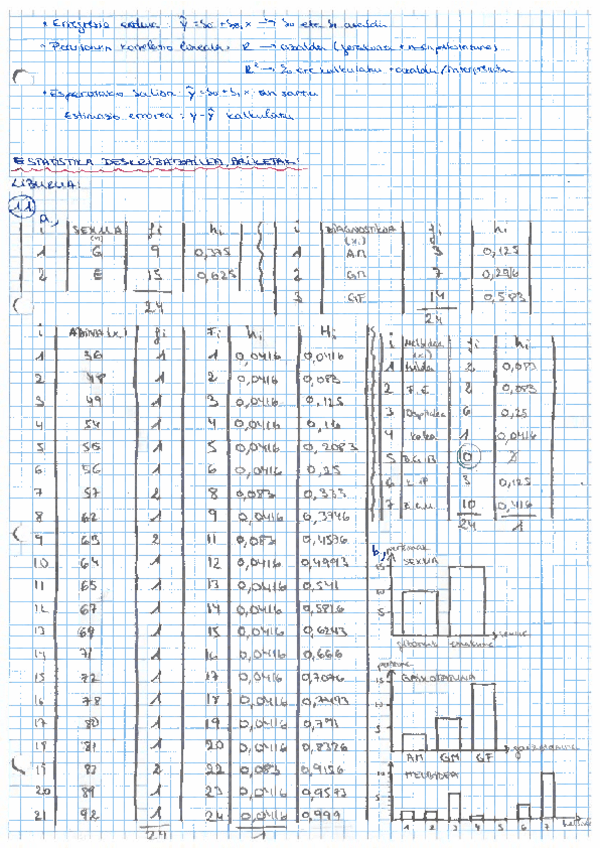 • Erregresio zuzena: ŷ = b₀ + b₁x
• Pearsonen korrelazio lineala: R →
R² →
• Esperotako balioa: ŷ = b₀ + b₁x
Estimazio errorea: y - ŷ kalkulatu
ESTATISTIKA DESKRIBATZAILEA ARIKETAK:
LIBURUA:
1.1
a,
i SEXUA (x) fi hi
1 G 9 0,375
2 E 15 0,625
24
i DIAGNOSTIKOA (x.) fi hi
1 AM 3 0,125
2 GM 7 0,2916
3 GF 14 0,583
24
i ADINA (x.) fi Fi hi Hi
1 36 1 1 0,0416 0,0416
2 48 1 2 0,0416 0,083
3 49 1 3 0,0416 0,125
4 54 1 4 0,0416 0,16
5 55 1 5 0,0416 0,2083
6 56 1 6 0,0416 0,25
7 57 2 8 0,083 0,333
8 62 1 9 0,0416 0,3746
9 63 2 11 0,083 0,4576
10 64 1 12 0,0416 0,49913
11 65 1 13 0,0416 0,541
12 67 1 14 0,0416 0,5826
13 69 1 15 0,0416 0,6243
14 71 1 16 0,0416 0,666
15 72 1 17 0,0416 0,7076
16 78 1 18 0,0416 0,7493
17 80 1 19 0,0416 0,791
18 81 1 20 0,0416 0,8326
19 83 2 22 0,083 0,9156
20 89 1 23 0,0416 0,9573
21 92 1 24 0,0416 0,999
24 1
i Helbidea (x.) fi hi
1 2 0,083
2 F.E 2 0,083
3 Ospitalea 6 0,25
4 1 0,0416
5 0
6 3 0,125
7 10 0,416
24 1
b, pertsonak
SEXUA
15
10
5
gizonak emakume sexua
pertsona
GAIXOTASUNA
15
10
5
AM GM GF gaixotasuna
HELBIDEA
10
5
1 2 3 4 5 6 7 helbidea